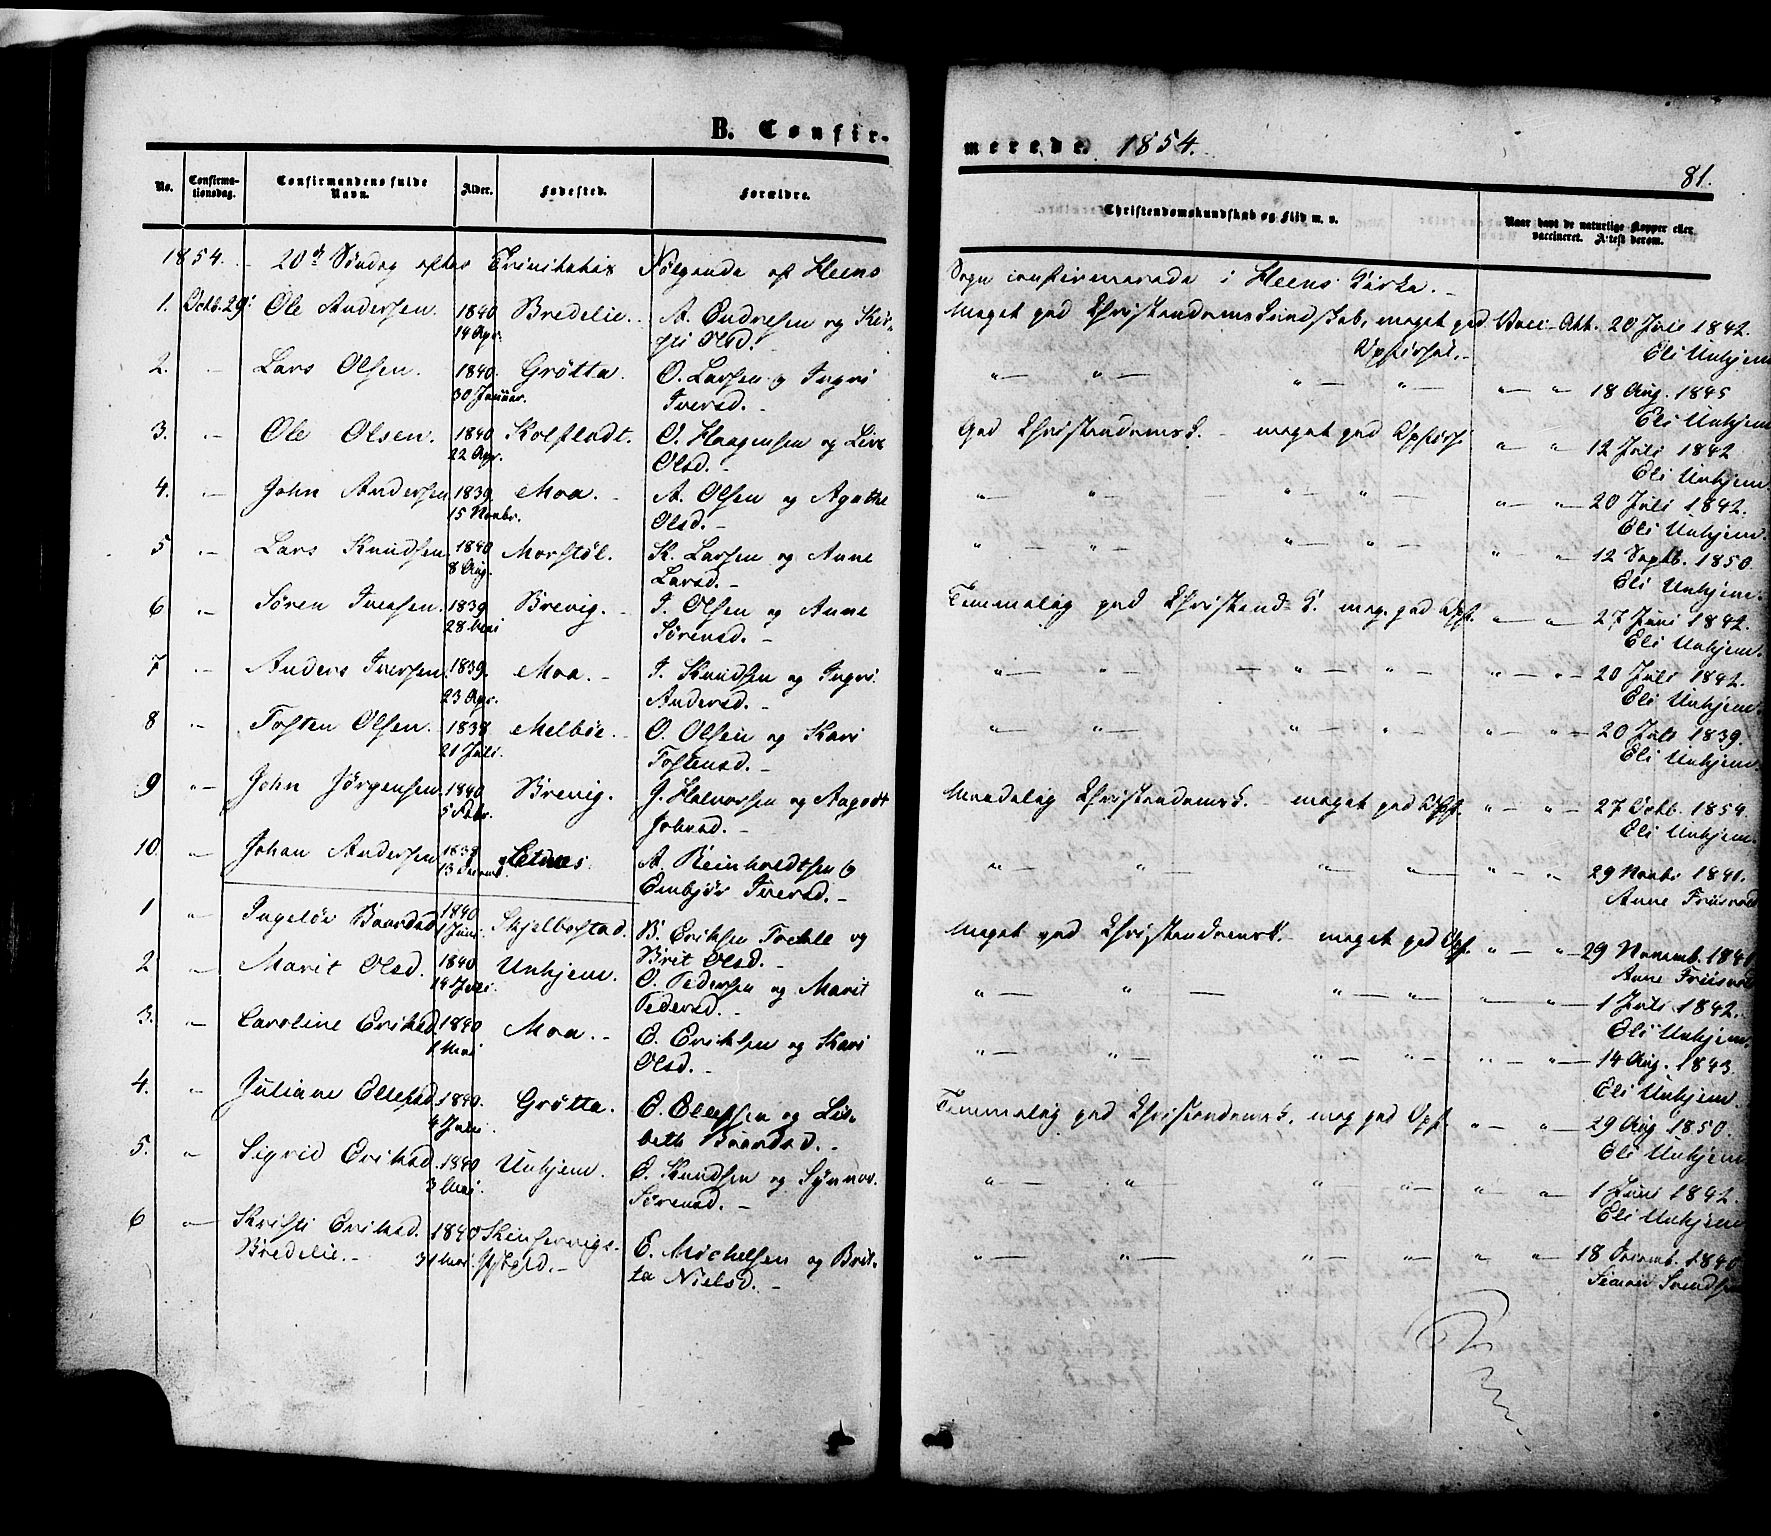 B. Confir-
merede. 1854.
81.
No.
Confirma-
tionsdag.
Confirmandens fulde
Navn.
Alder.
Fødested.
Forældre.
Christendomskundskab og Flid m. v.
Naar havt de naturlige Kopper eller
vaccineret. Attest derom.
1854. 20d Söndag efter Trinitatis Følgende af Heens
Sogn confirmerede i Heens Kirke. –
1. Octb. 29. Ole Andersen. 1840 Bredelie. A. Endresen og Kir-
14 Apr. sti Olsd.
Meget god Christendomskundskab, meget god Vacc. Att. 20 Juli 1842.
Opførsel. – Eli Unhjem
2. " Lars Olsen. 1840. Grötta. O. Larsen og Ingri
30 Januar. Iversd. –
" – " – " – " – " – " 18 Aug. 1845
Eli Unhjem
3. " Ole Olsen. 1840 Kolflodt. O. Haagensen og Live
22 Apr. Olsd. –
God Christendomsk. – meget god Opførs. " – " 12 Juli 1842
Eli Unhjem.
4. " John Andersen 1839. Moa. – A. Olsen og Agathe
15 Novbr. Olsd. –
" – " – " – " – " – " – 20 Juli 1842.
Eli Unhjem.
5 " Lars Knudsen 1840 Morstöl. K. Larsen og Anne
8 Aug. Larsd. –
" – " – " – " – " – " – 12 Septb. 1850.
Eli Unhjem.
6 " Sören Iversen. 1839 Brevig. – I. Olsen og Anne
28 Mai Sörensd. –
Temmelig god Christend. K. meg. god Opf. " – " – 27 Juni 1842.
Eli Unhjem.
7 " Anders Iversen. 1839. Moa. – I. Knudsen og Ingri
23 Apr. Andersd. –
" – " – " – " – " – " – 20 Juli 1842.
Eli Unhjem.
8 " Tosten Olsen. 1838 Melböe. O. Olsen og Kari
21 Juli. Tostensd. –
" – " – " – " – " – " – 20 Juli 1839.
Eli Unhjem.
9 " John Jörgensen. 1840 Brevig. J. Halvorsen og Aagodt
5 Febr. Johnsd. –
Maadelig Christendomsk. – meget god Opf. " – " – 27 Octb. 1854.
Eli Unhjem.
10. " Johan Andersen 1839 Setnes. A. Reinholdtsen og
13 Embjör Iversd. –
" – " – " – " – " – " – 29 Novbr 1841.
Anne Friisvold
1 " Ingelöv Baardsd. 1840 Skjelbostad. B. Eriksen Torhle og
1 Juni. Brit Olsd. –
Meget god Christendomsk. – meget god Opf. " – " – 29 Novemb. 1841
Anne Friisvold
2 " Marit Olsd. 1840 Unhjem. O. Pedersen og Marit
14 Juli. Pedersd. –
" – " – " – " – 1 Juli 1842.
Eli Unhjem.
3. " Caroline Eriksd. 1840 Moa. – E. Eriksen og Kari
1 Mai Olsd. –
" – " – " – " – " – " – 14 Aug. 1843.
Eli Unhjem.
4. " Juliane Ellefsd. 1840. Grötta. E. Ellefsen og Lis-
4 Juli. beth Baardsd. –
Temmelig god Christendomsk. meg god Opf. " – " – 29 Aug 1850.
Eli Unhjem
5. " Sigrid Eriksd. 1840 Unhjem. E. Knudsen og Synnov
3 Mai. Sörensd. –
" – " – " " – " – " – 1 Juni 1842.
Eli Unhjem
6 " Kristi Eriksd. 1840 E. Michelsen og Brit-
Bredelie. – 31 Mar. ta Nielsd. –
" – " – " " – " " – 18 1840
Simon Svendsen